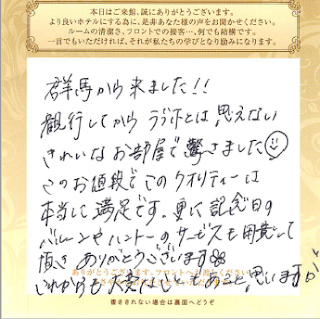 本日はご来館、誠にありがとうございます。
より良いホテルにする為に、是非あなた様の声をお聞かせください。
ルームの清潔さ、フロントでの接客…、何でも結構です。
一言でもいただければ、それが私たちの学びとなり励みになります。
群馬から来ました!!
観行してから ラブホとは思えない
きれいなお部屋で驚きました
このお値段でこのクオリティーは
本当に満足です。更に記念日の
バルーンや のサービスも用意して
頂き ありがとうございます
ありがとうございます。フロントへ
これからも大変だと あると思いますが
書ききれない場合は裏面へどうぞ